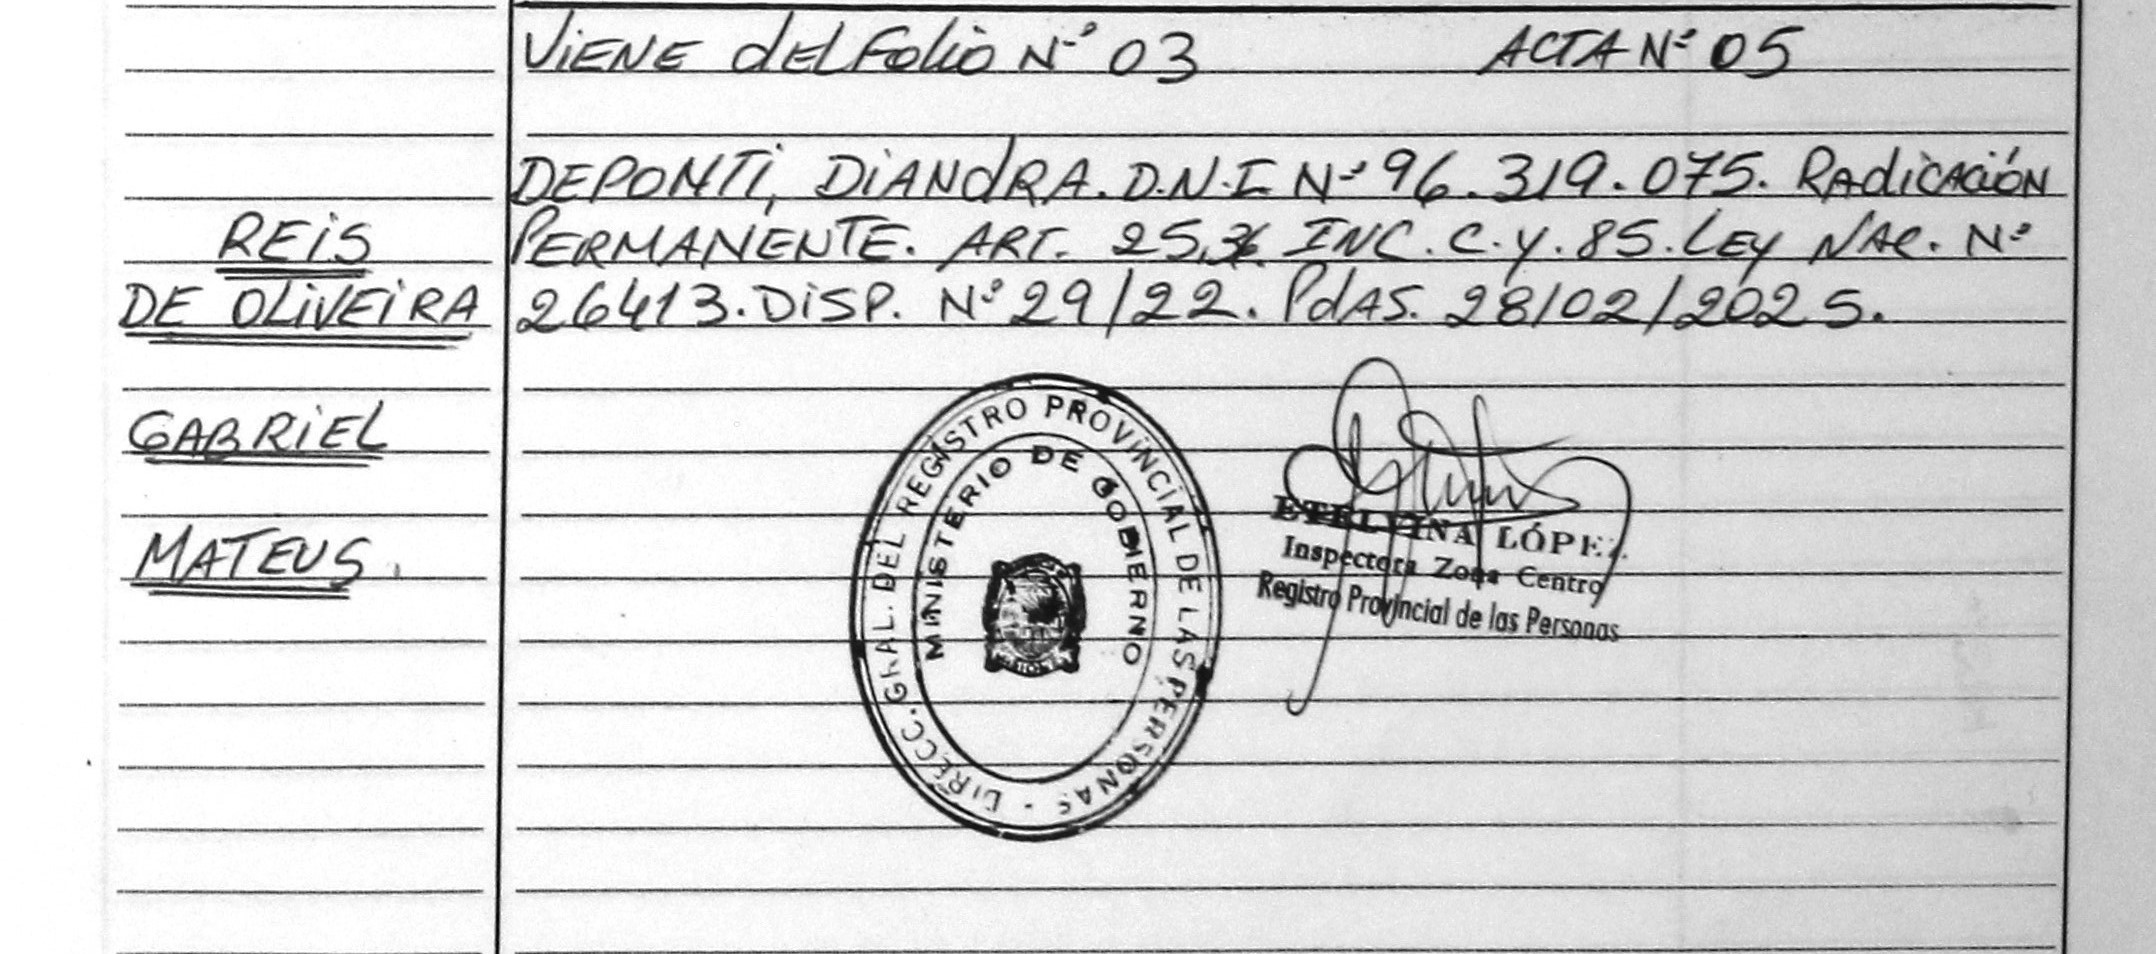 ViENE dELFoliO Nº 03 ACTA Nº 05
DEPONTi, DiANdRA. D.N.I Nº 96.319.075. RAdiCACiÓN
PERMANENTE. ART. 25,36 INC. C.Y.85. LEY NAC. Nº
26413. DiSP. Nº 29/22. PdAS. 28/02/2025.
REiS
DE OLiVEiRA
GABRiEL
MATEUS.
DIRECC. GRAL. DEL REGISTRO PROVINCIAL DE LAS PERSONAS -
MINISTERIO DE GOBIERNO
ETELVINA LÓPEZ
Inspectora Zona Centro
Registro Provincial de las Personas